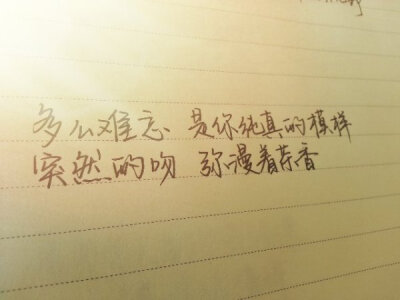 多么难忘 是你纯真的模样
突然的吻 弥漫着芬香